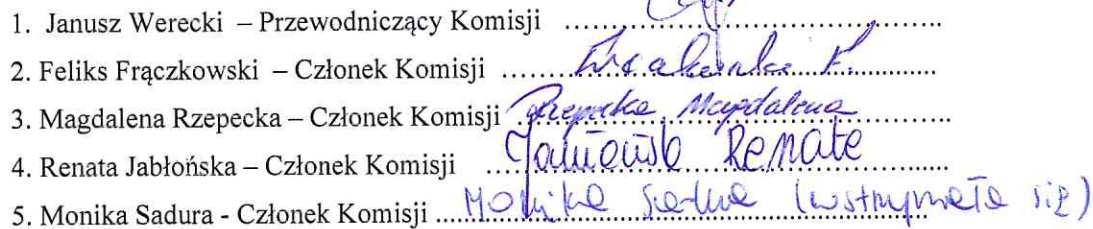 1. Janusz Werecki – Przewodniczący Komisji ..........................................
2. Feliks Frączkowski – Członek Komisji ...... F. ..............
3. Magdalena Rzepecka – Członek Komisji Rzepecka Magdalena ..............
4. Renata Jabłońska – Członek Komisji ...... Renata ..............
5. Monika Sadura - Członek Komisji .... Monika Sadura (wstrzymała się)